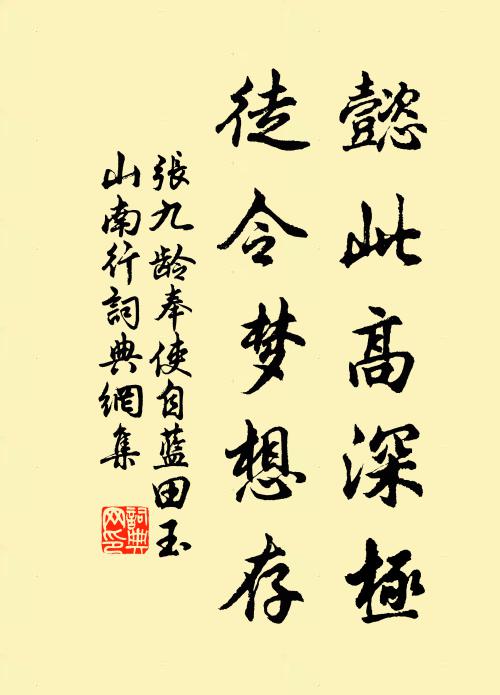 懿此高深極
徒令梦想存
張九龄奉使自蓝田玉
山南行詞典網集
詞典
网印